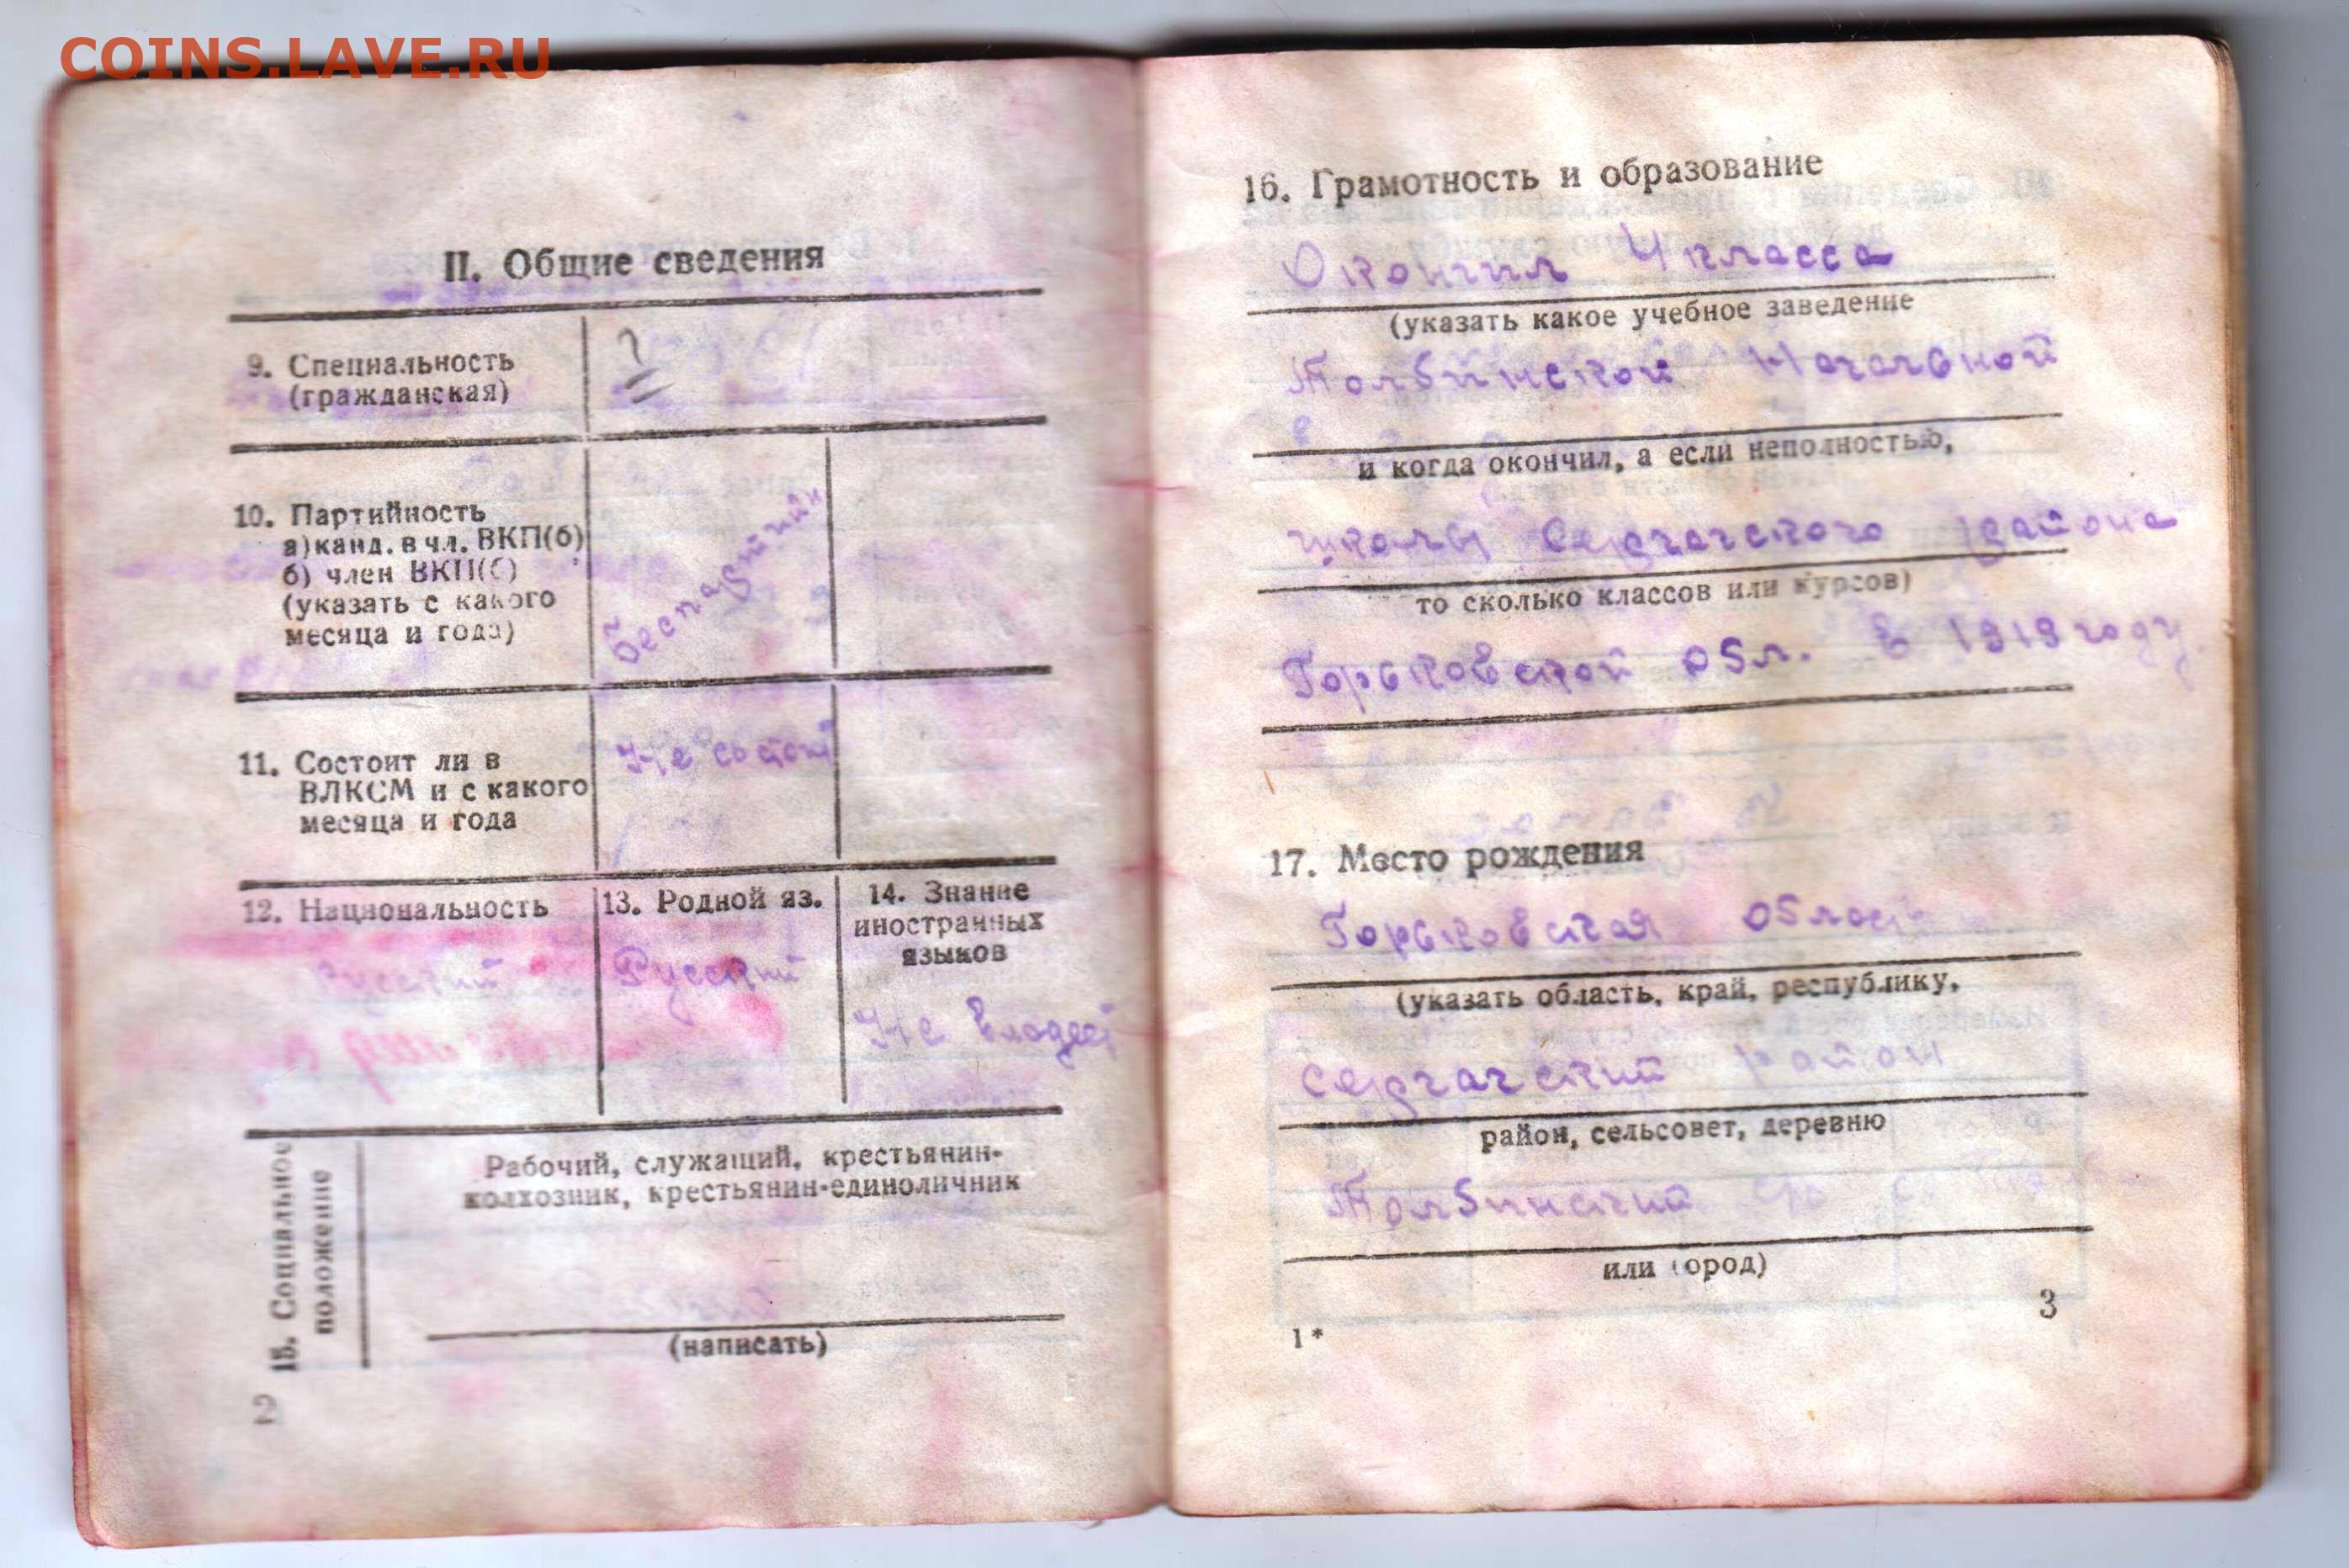 COINS.LAVE.RU
II. Общие сведения
9. Специальность
(гражданская)
?
10. Партийность
а) канд. в чл. ВКП(б)
б) член ВКП(б)
(указать с какого
месяца и года)
беспартийный
11. Состоит ли в
ВЛКСМ и с какого
месяца и года
Не состоит
12. Национальность
Русский
13. Родной яз.
Русский
14. Знание
иностранных
языков
Не владеет
15. Социальное
положение
Рабочий, служащий, крестьянин-
колхозник, крестьянин-единоличник
(написать)
2
16. Грамотность и образование
Окончил 4 класса
(указать какое учебное заведение
Толбинской Начальной
и когда окончил, а если неполностью,
школы Сергачского района
то сколько классов или курсов)
Горьковской обл. в 1919 году
17. Место рождения
Горьковская область
(указать область, край, республику,
Сергачский район
район, сельсовет, деревню
Толбинский
или город)
3
1*